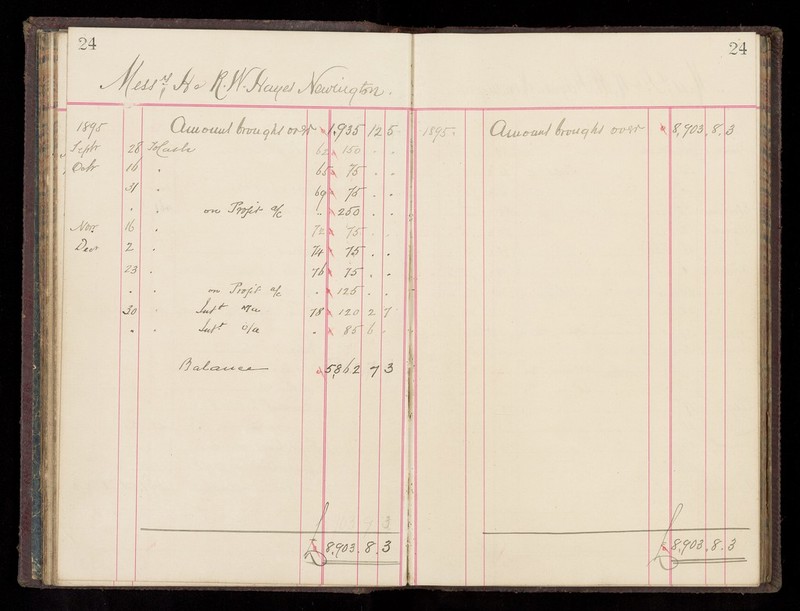 24
Messrs H & R.W. Hayes Newington.
1895 Amount brought over 1,935 12 5
Septr 28 To Cash 62 150 . .
Octr 16 " 65 75 . .
31 " 69 75 . .
" " on Profit a/c " 250 . .
Novr 16 " 72 75 . .
Decr 2 " 74 75 . .
23 " 76 75 . .
" " on Profit a/c " 125 . .
30 " Intt 78 120 2 7
" " Intt " 85 6 -
Balance 5,862 7 3
£ 8,903. 8. 3
24
1895. Amount brought over 8,903. 8. 3
£ 8,903. 8. 3